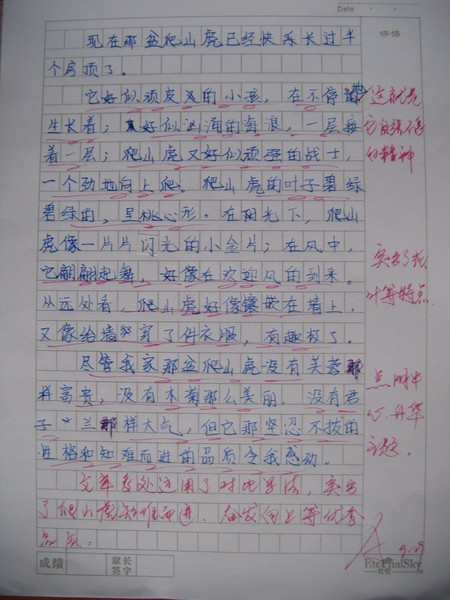 Date
评悟
现在那盆爬山虎已经快乐长过半
个房顶了。
它好似顽皮的小孩，在不停的
生长着；好似汹涌的海浪，一层接
着一层；爬山虎又好似顽强的战士，
一个劲地向上爬。爬山虎的叶子碧绿
碧绿的，呈桃心形。在阳光下，爬山
虎像一片片闪光的小金片；在风中，
它翩翩起舞，好像在欢迎风的到来。
从远处看，爬山虎好像镶嵌在墙上，
又像给墙穿了件衣服，有趣极了。
尽管我家那盆爬山虎没有芙蓉那
样高贵，没有木菊那么美丽，没有君
子兰那样大气，但它那坚忍不拔的
性格和知难而进的品质令我感动。
这就是
它自强不息
的精神
突出了花
叶等特点
点明中
心，升华
主题。
文章多处运用了对比手法，突出
了爬山虎知难而进、奋发向上等优秀
品质。
A
9.29
成绩
家长
签字
EternalSky